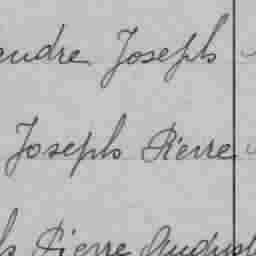 andre Joseph
Joseph Pierre
h Pierre August